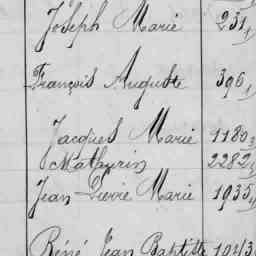 Joseph Marie 231
François Auguste 396
Jacques Marie 1180
Mathurin 2282
Jean Pierre Marie 1935
Réné Jean Baptiste 1043